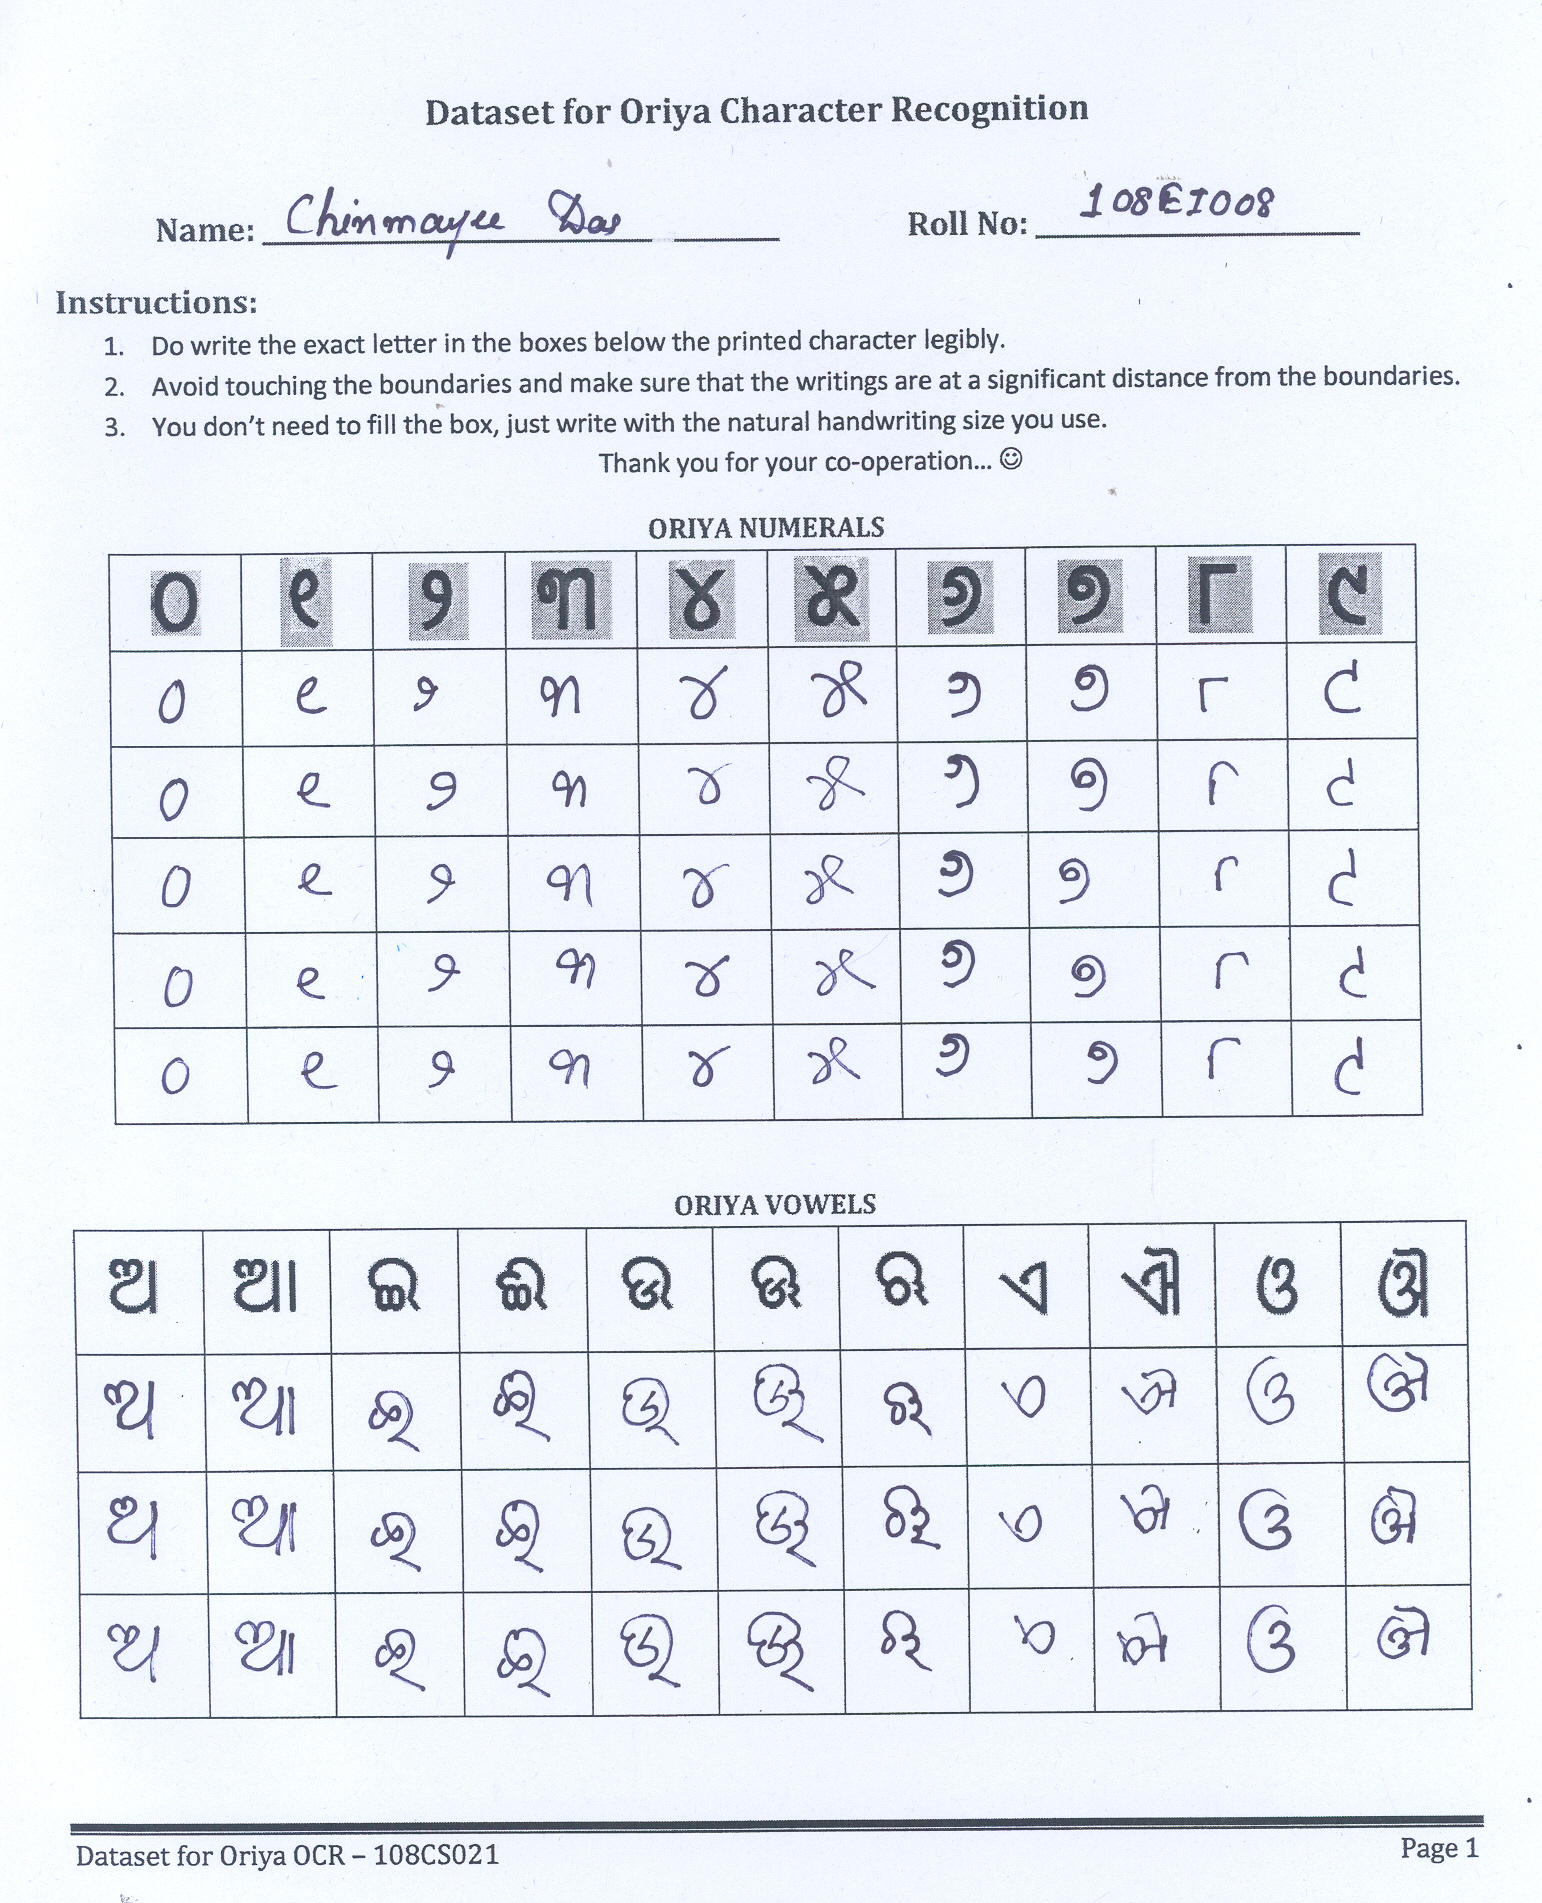 Dataset for Oriya Character Recognition
Name: Chinmayee Das Roll No: 108EI008
Instructions:
1. Do write the exact letter in the boxes below the printed character legibly.
2. Avoid touching the boundaries and make sure that the writings are at a significant distance from the boundaries.
3. You don't need to fill the box, just write with the natural handwriting size you use.
Thank you for your co-operation... ☺
ORIYA NUMERALS
୦ ୧ ୨ ୩ ୪ ୫ ୬ ୭ ୮ ୯
୦ ୧ ୨ ୩ ୪ ୫ ୬ ୭ ୮ ୯
୦ ୧ ୨ ୩ ୪ ୫ ୬ ୭ ୮ ୯
୦ ୧ ୨ ୩ ୪ ୫ ୬ ୭ ୮ ୯
୦ ୧ ୨ ୩ ୪ ୫ ୬ ୭ ୮ ୯
୦ ୧ ୨ ୩ ୪ ୫ ୬ ୭ ୮ ୯
ORIYA VOWELS
ଅ ଆ ଇ ଈ ଉ ଊ ଋ ଏ ଐ ଓ ଔ
ଅ ଆ ଇ ଈ ଉ ଊ ଋ ଏ ଐ ଓ ଔ
ଅ ଆ ଇ ଈ ଉ ଊ ଋ ଏ ଐ ଓ ଔ
ଅ ଆ ଇ ଈ ଉ ଊ ଋ ଏ ଐ ଓ ଔ
Dataset for Oriya OCR – 108CS021 Page 1